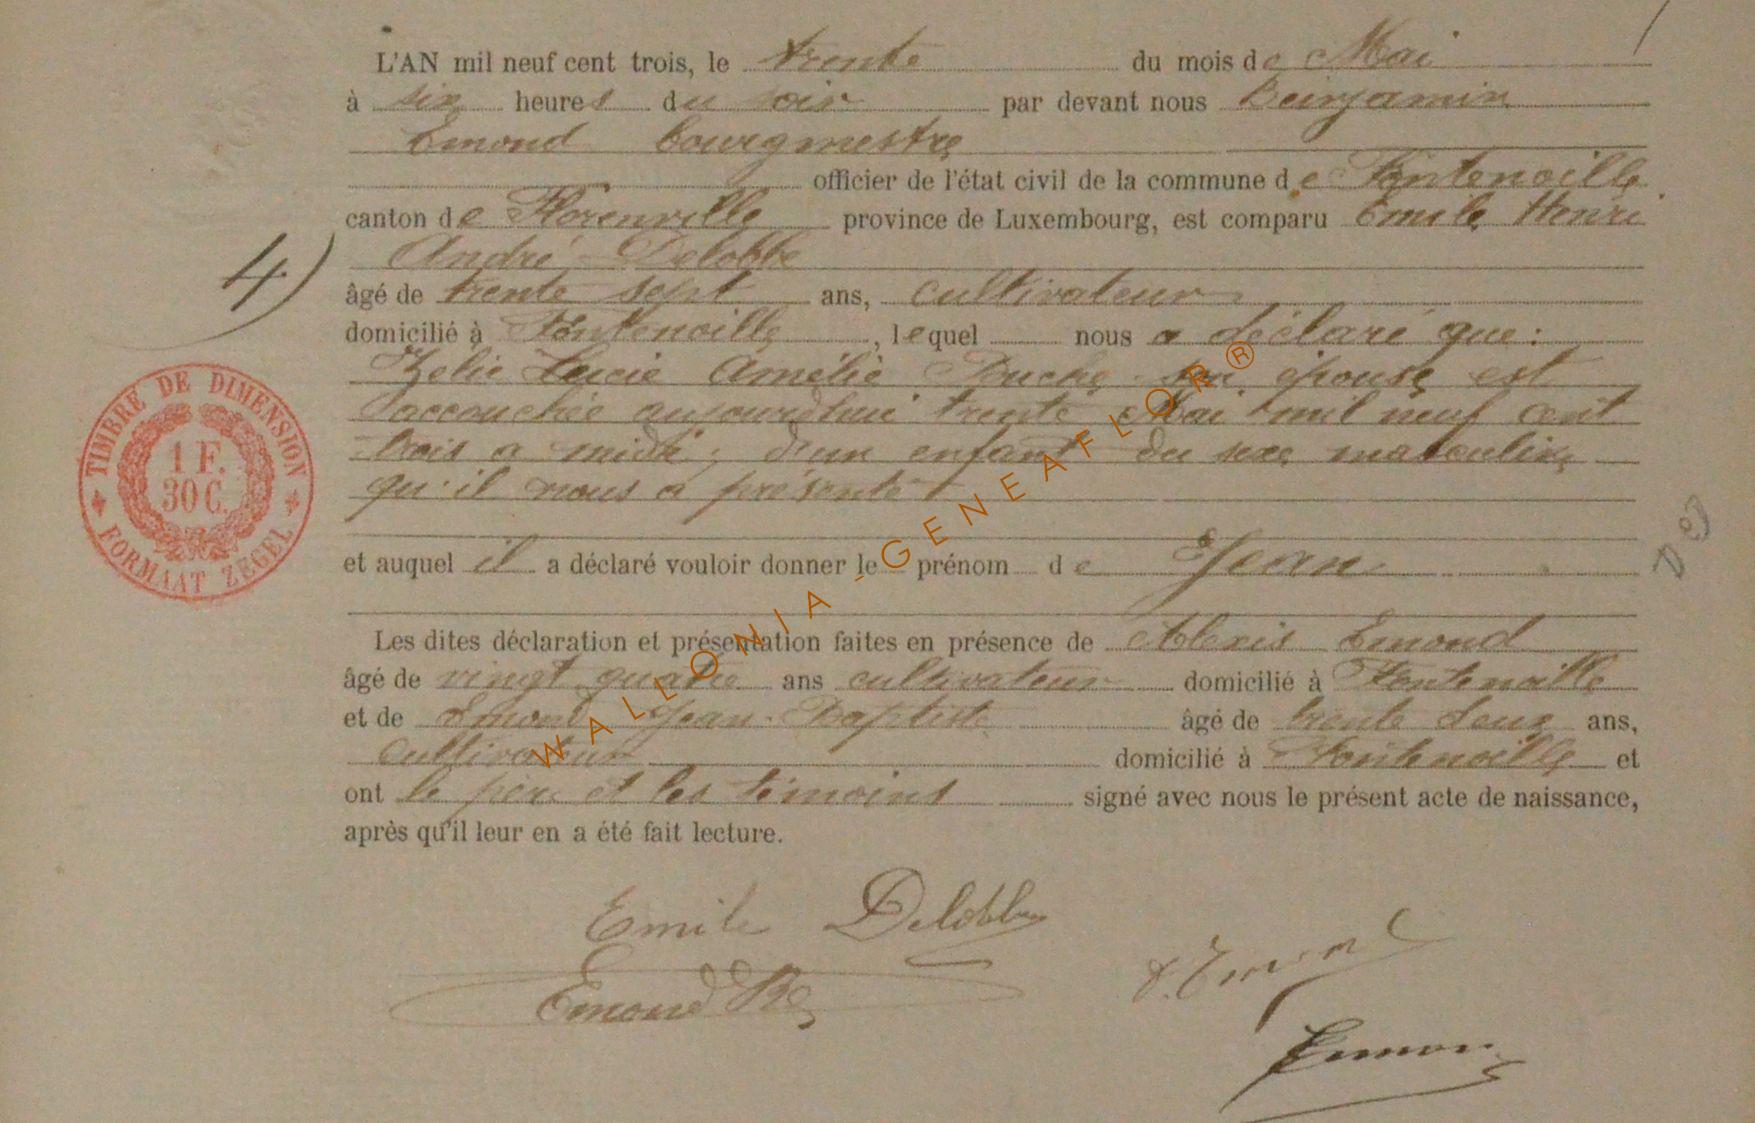 L'AN mil neuf cent trois, le trente du mois de Mai
à six heures du soir par devant nous Benjamin
Emond bourgmestre
officier de l'état civil de la commune de Fontenoille
canton de Florenville province de Luxembourg, est comparu Emile Henri
André Delobbe
4)
âgé de trente sept ans, cultivateur
domicilié à Fontenoille, lequel nous a déclaré que:
Zelie Lucie Amélie Puche son épouse est
accouchée aujourdhui trente Mai mil neuf cent
trois a midi, d'un enfant du sexe masculin
qu'il nous a présenté
TIMBRE DE DIMENSION
1 F.
30 C.
FORMAAT ZEGEL
et auquel il a déclaré vouloir donner le prénom de Jean
Les dites déclaration et présentation faites en présence de Alexis Emond
âgé de vingt quatre ans cultivateur domicilié à Fontenoille
et de Emond Jean-Baptiste âgé de trente deux ans,
cultivateur domicilié à Fontenoille et
ont le père et les témoins signé avec nous le présent acte de naissance,
après qu'il leur en a été fait lecture.
Emile Delobbe
Emond
WALLONIA-GENEAFLOR®